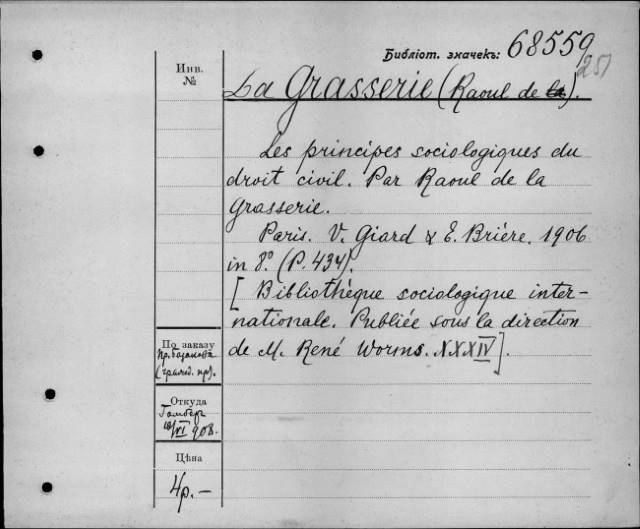 Библіот. значекъ: 68559
251
Инв.
№
La Grasserie (Raoul de la).
Les principes sociologiques du
droit civil. Par Raoul de la
Grasserie.
Paris. V. Giard & E. Brière. 1906
in 8.° (P. 434).
[Bibliothèque sociologique inter-
nationale. Publiée sous la direction
de M. René Worms. XXXIV].
По заказу
Пр. Базанова
(гражд. пр).
Откуда
/VI 908.
Цѣна
4р. —